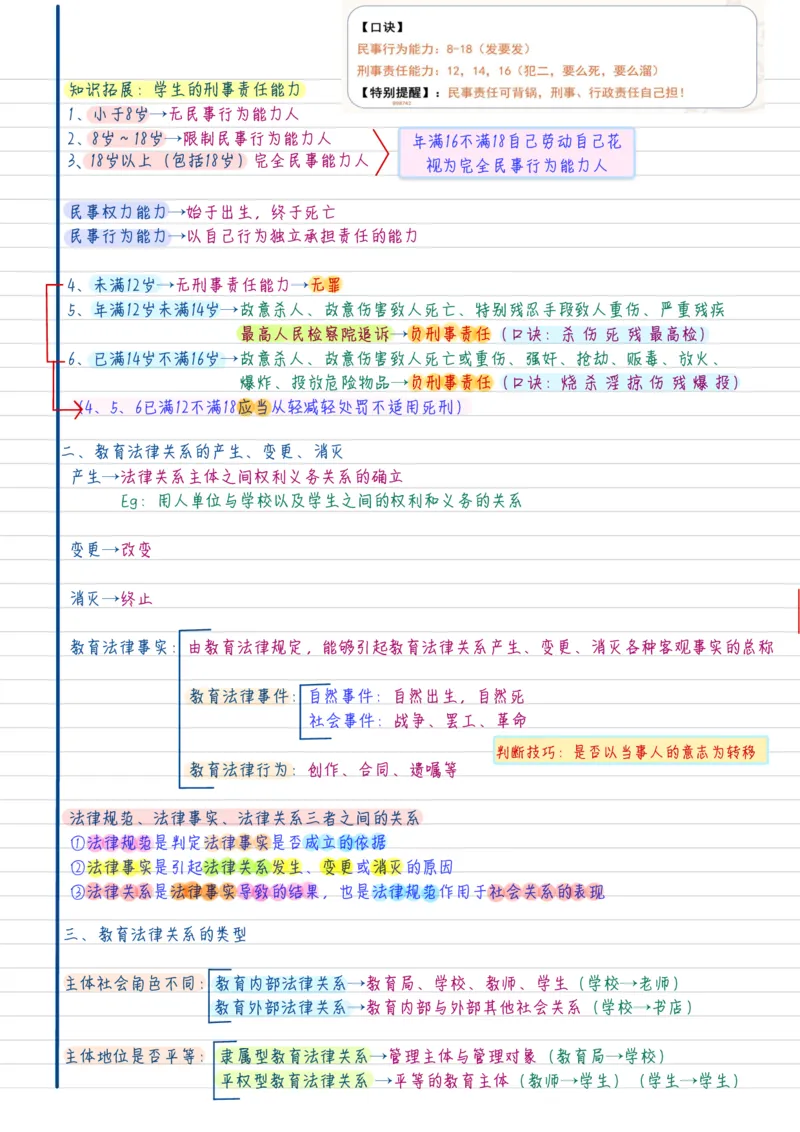 【口诀】
民事行为能力：8-18（发要发）
刑事责任能力：12，14，16（犯二，要么死，要么溜）
【特别提醒】：民事责任可背锅，刑事、行政责任自己担！
知识拓展：学生的刑事责任能力
1、小于8岁→无民事行为能力人
2、8岁~18岁→限制民事行为能力人
3、18岁以上（包括18岁）完全民事能力人
年满16不满18自己劳动自己花
视为完全民事行为能力人
民事权力能力→始于出生，终于死亡
民事行为能力→以自己行为独立承担责任的能力
4、未满12岁→无刑事责任能力→无罪
5、年满12岁未满14岁→故意杀人、故意伤害致人死亡、特别残忍手段致人重伤、严重残疾
最高人民检察院追诉→负刑事责任（口诀：杀伤死残最高检）
6、已满14岁不满16岁→故意杀人、故意伤害致人死亡或重伤、强奸、抢劫、贩毒、放火、
爆炸、投放危险物品→负刑事责任（口诀：烧杀淫掠伤残爆投）
（4、5、6已满12不满18应当从轻减轻处罚不适用死刑）
二、教育法律关系的产生、变更、消灭
产生→法律关系主体之间权利义务关系的确立
Eg：用人单位与学校以及学生之间的权利和义务的关系
变更→改变
消灭→终止
教育法律事实：由教育法律规定，能够引起教育法律关系产生、变更、消灭各种客观事实的总称
教育法律事件：自然事件：自然出生，自然死
社会事件：战争、罢工、革命
判断技巧：是否以当事人的意志为转移
教育法律行为：创作、合同、遗嘱等
法律规范、法律事实、法律关系三者之间的关系
①法律规范是判定法律事实是否成立的依据
②法律事实是引起法律关系发生、变更或消灭的原因
③法律关系是法律事实导致的结果，也是法律规范作用于社会关系的表现
三、教育法律关系的类型
主体社会角色不同：教育内部法律关系→教育局、学校、教师、学生（学校→老师）
教育外部法律关系→教育内部与外部其他社会关系（学校→书店）
主体地位是否平等：隶属型教育法律关系→管理主体与管理对象（教育局→学校）
平权型教育法律关系→平等的教育主体（教师→学生）（学生→学生）